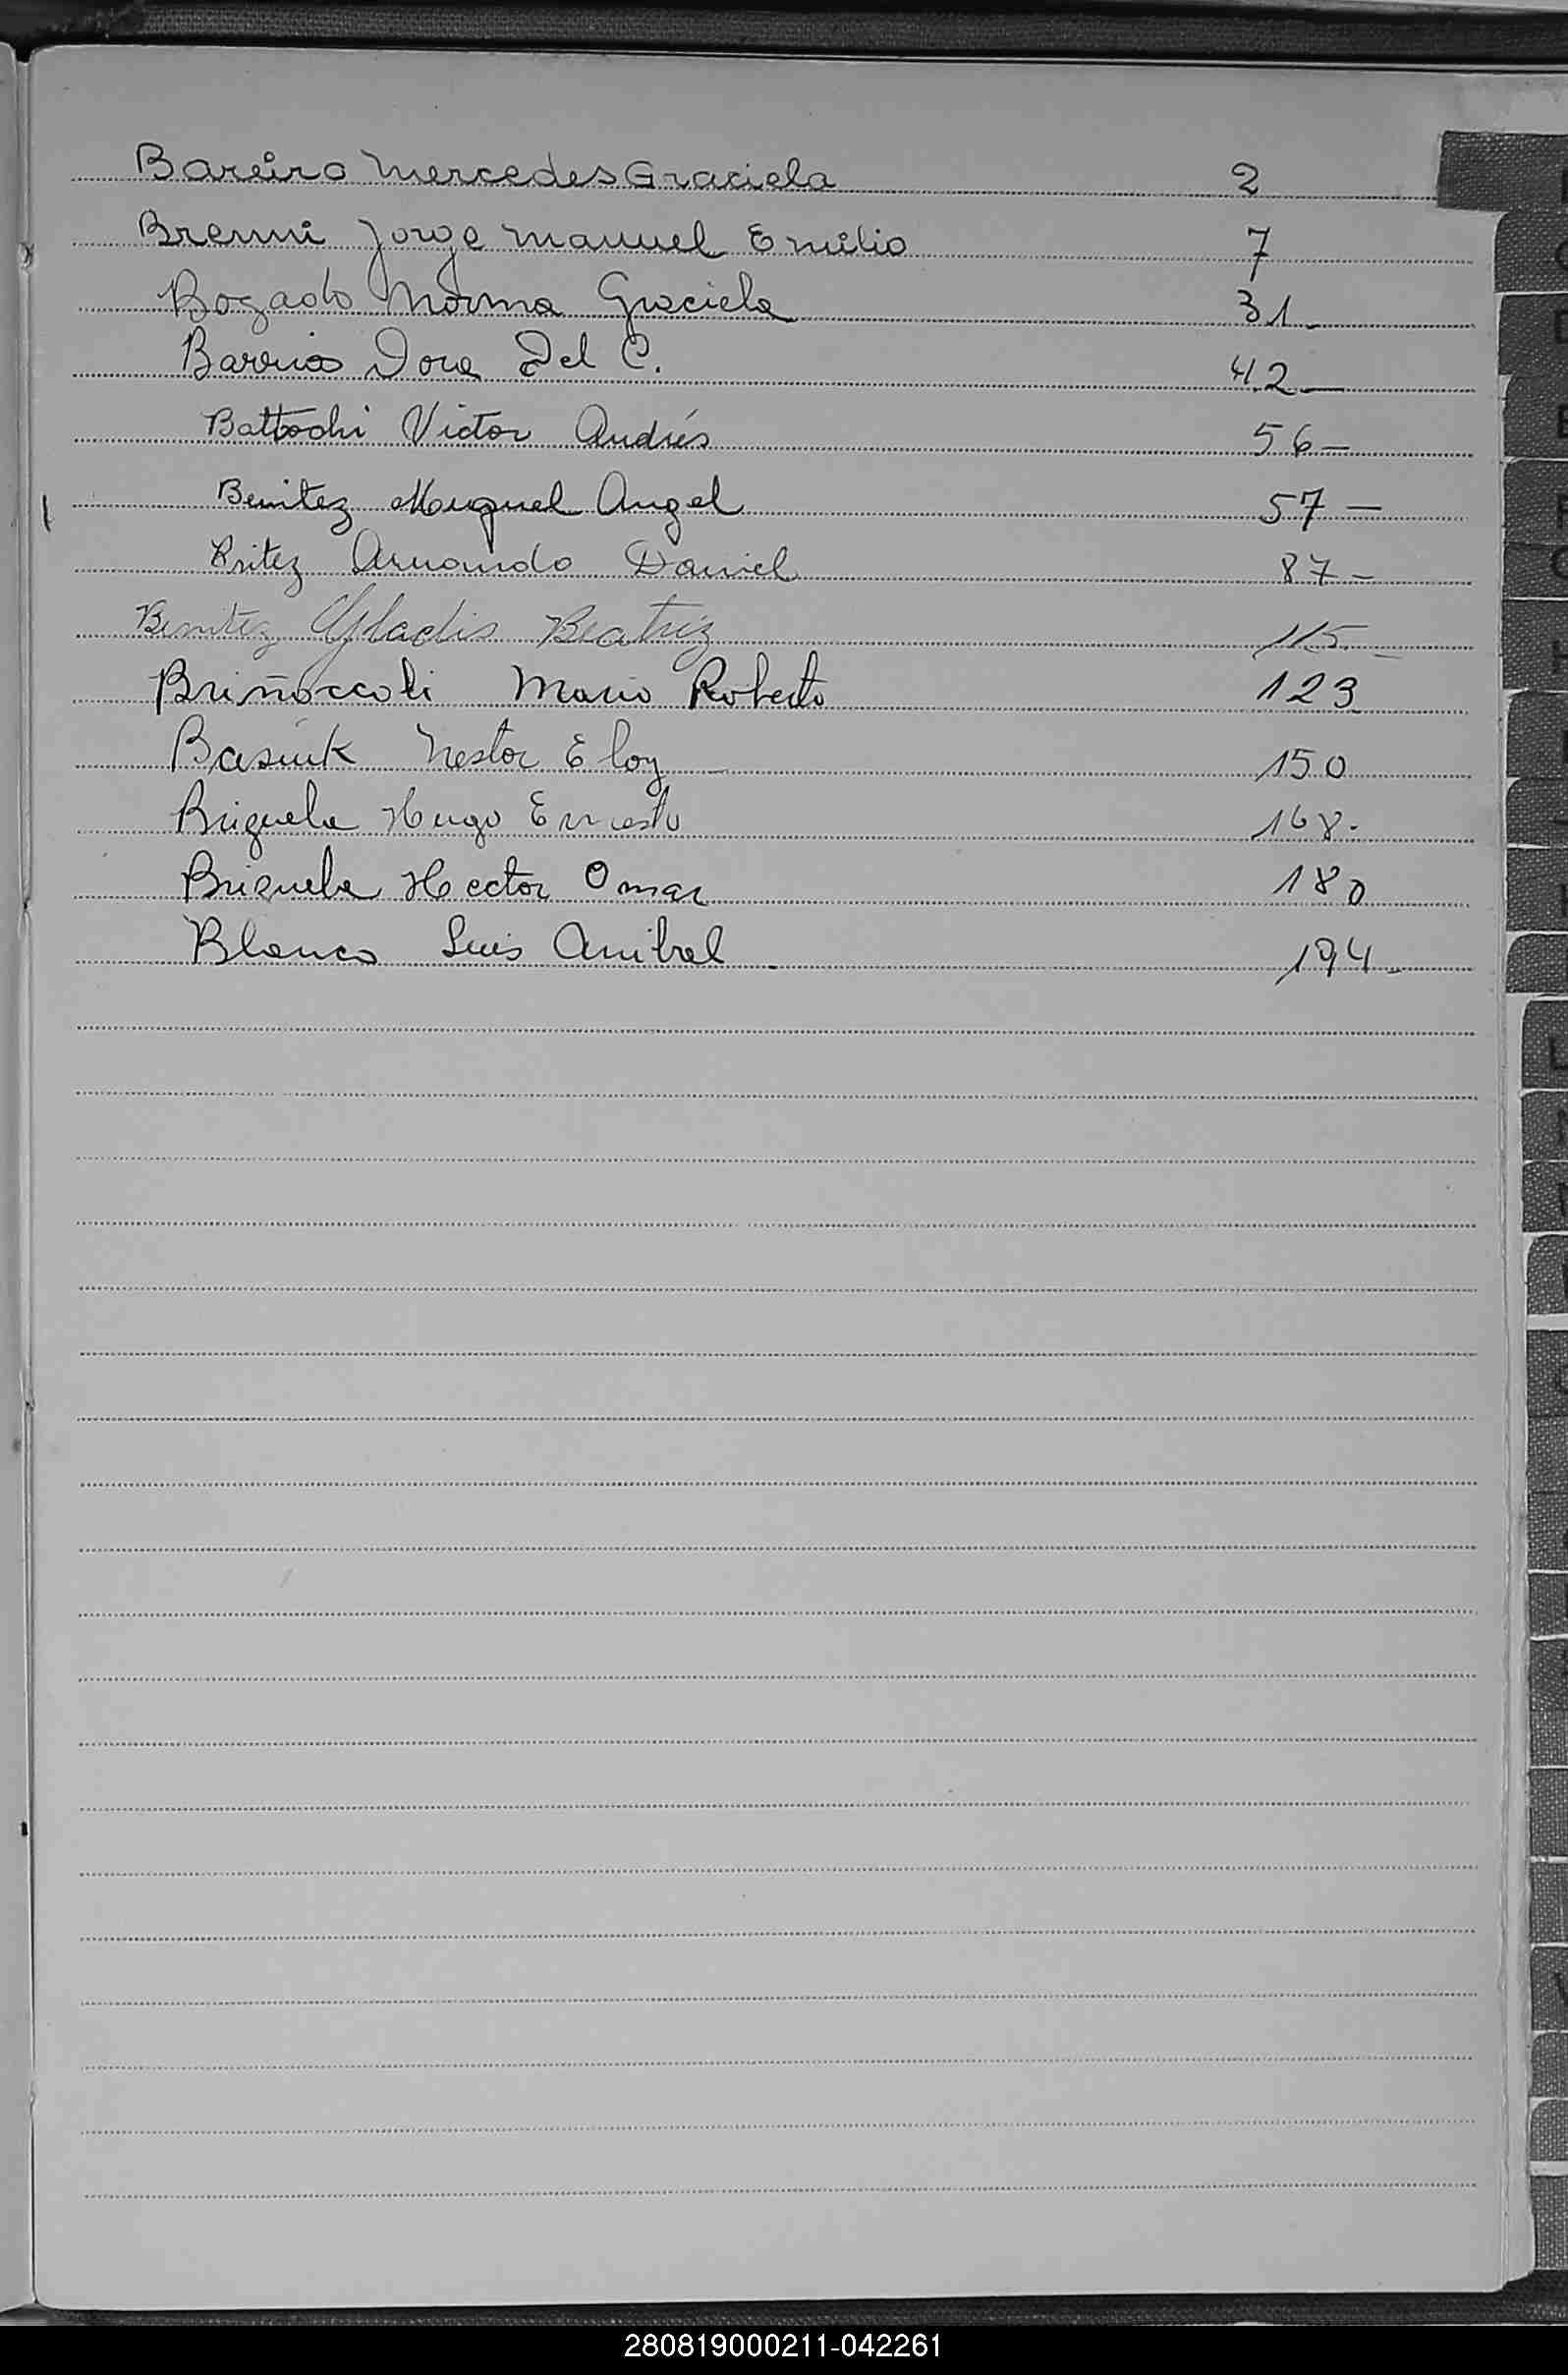 Bareiro Mercedes Graciela 2
Brenni Jorge Manuel Emilio 7
Bogado Norma Graciela 31-
Barrios Dora Del C. 42-
Battochi Victor Andrés 56-
Benitez Miguel Angel 57-
Britez Armando Daniel 87-
Benitez Gladis Beatriz 115-
Briñoccoli Mario Roberto 123
Basiuk Nestor Eloy 150
Briguela Hugo Ernesto 168.
Briguela Hector Omar 180
Blanco Luis Anibal 194-
280819000211-042261